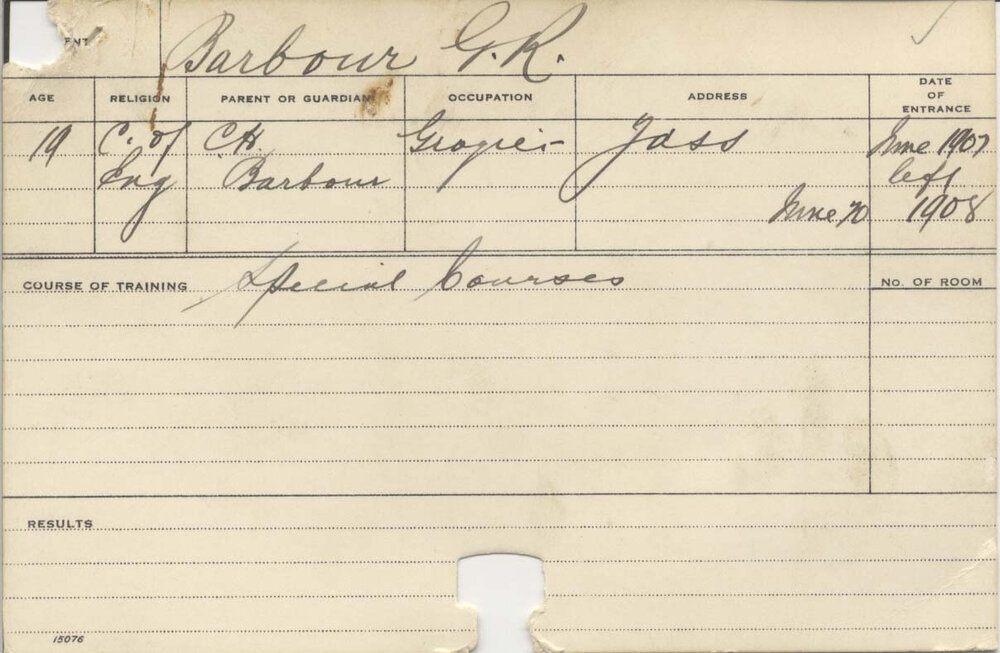 ENT Barbour G.R.
AGE RELIGION PARENT OR GUARDIAN OCCUPATION ADDRESS DATE OF ENTRANCE
19 C. of C.H. Grazier Yass June 1907
Eng Barbour left
June 1908
COURSE OF TRAINING Special Courses NO. OF ROOM
RESULTS
15076